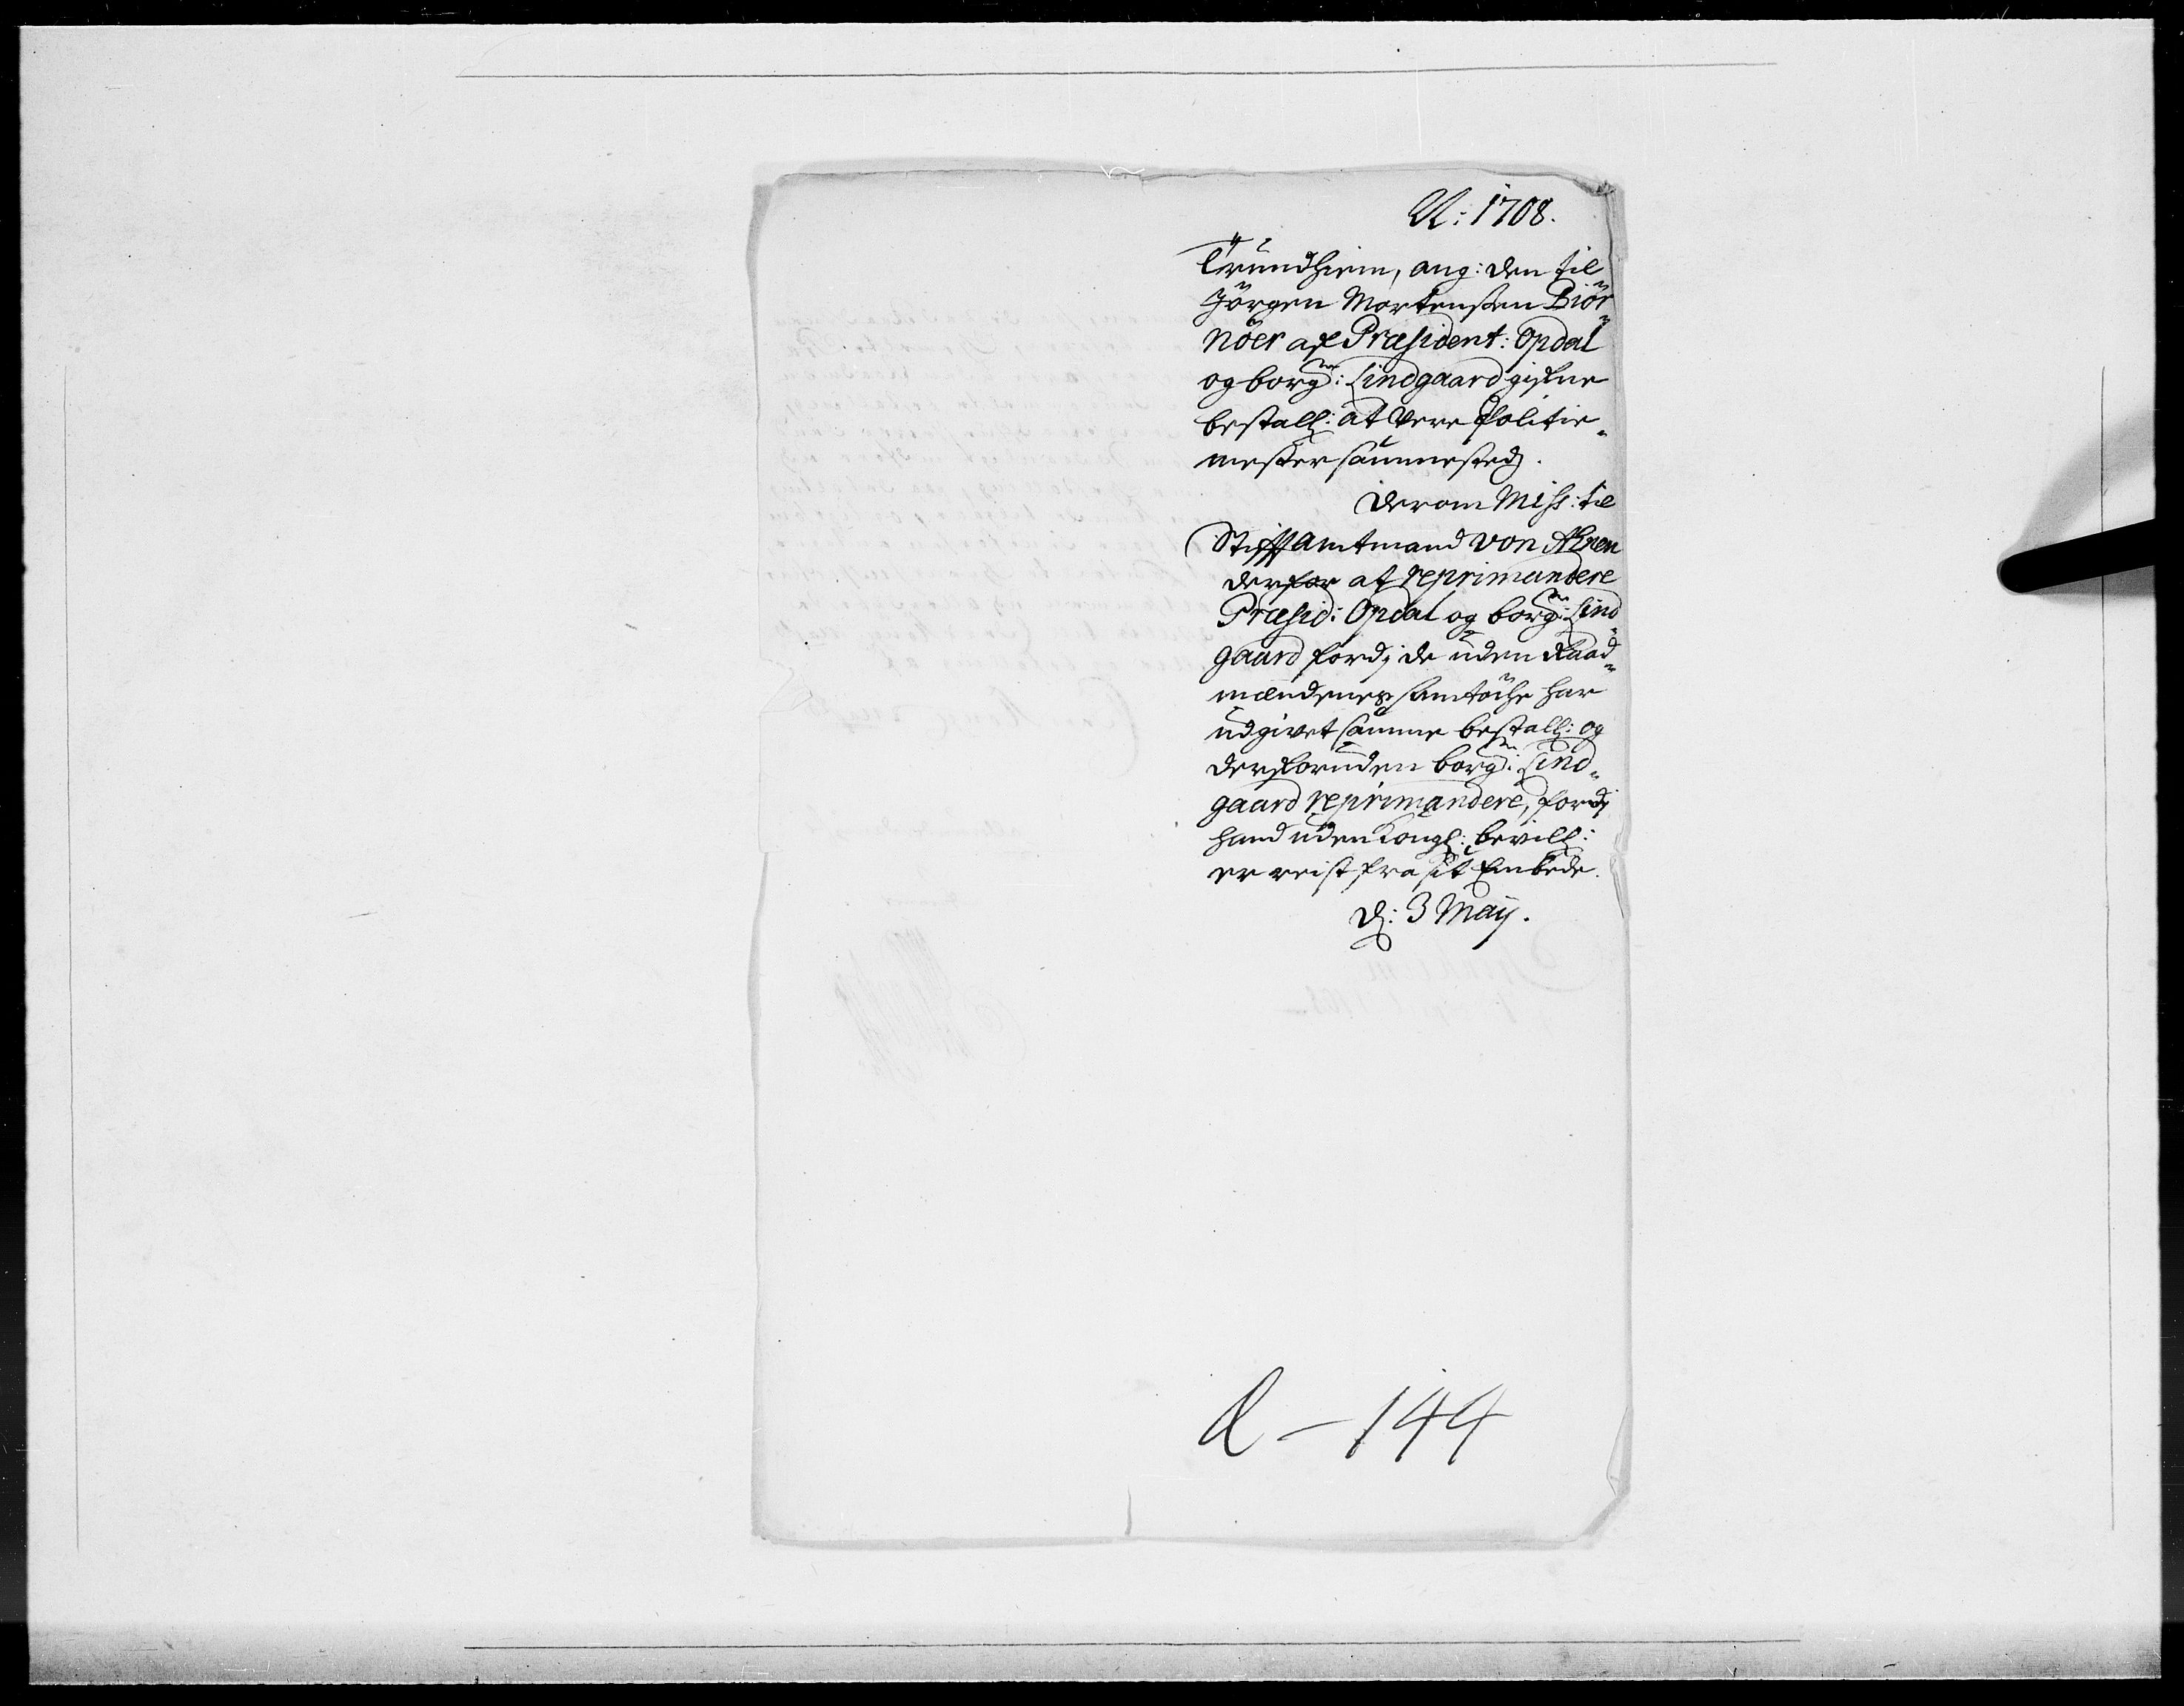 A: 1708.
Trundhiem, ang: den til
Jörgen Mortensen Biör„
nöer af Præsident: Opdal
og borgm: Lindgaard gifne
bestall: at Være Politie„
mester sammested.
Derom Miss: til
Stifftamtmand von Ahnen
derfor at reprimandere
Præsid: Opdal og borgm: Lind„
gaard fordj de uden Raad„
mændenes samtöche har
udgivet samme bestall: og
derforuden borgm: Lind„
gaard reprimandere, fordj
hand uden Kongl: bevill:
er reist fra sit Embede.
d: 3 Maij.
R - 144